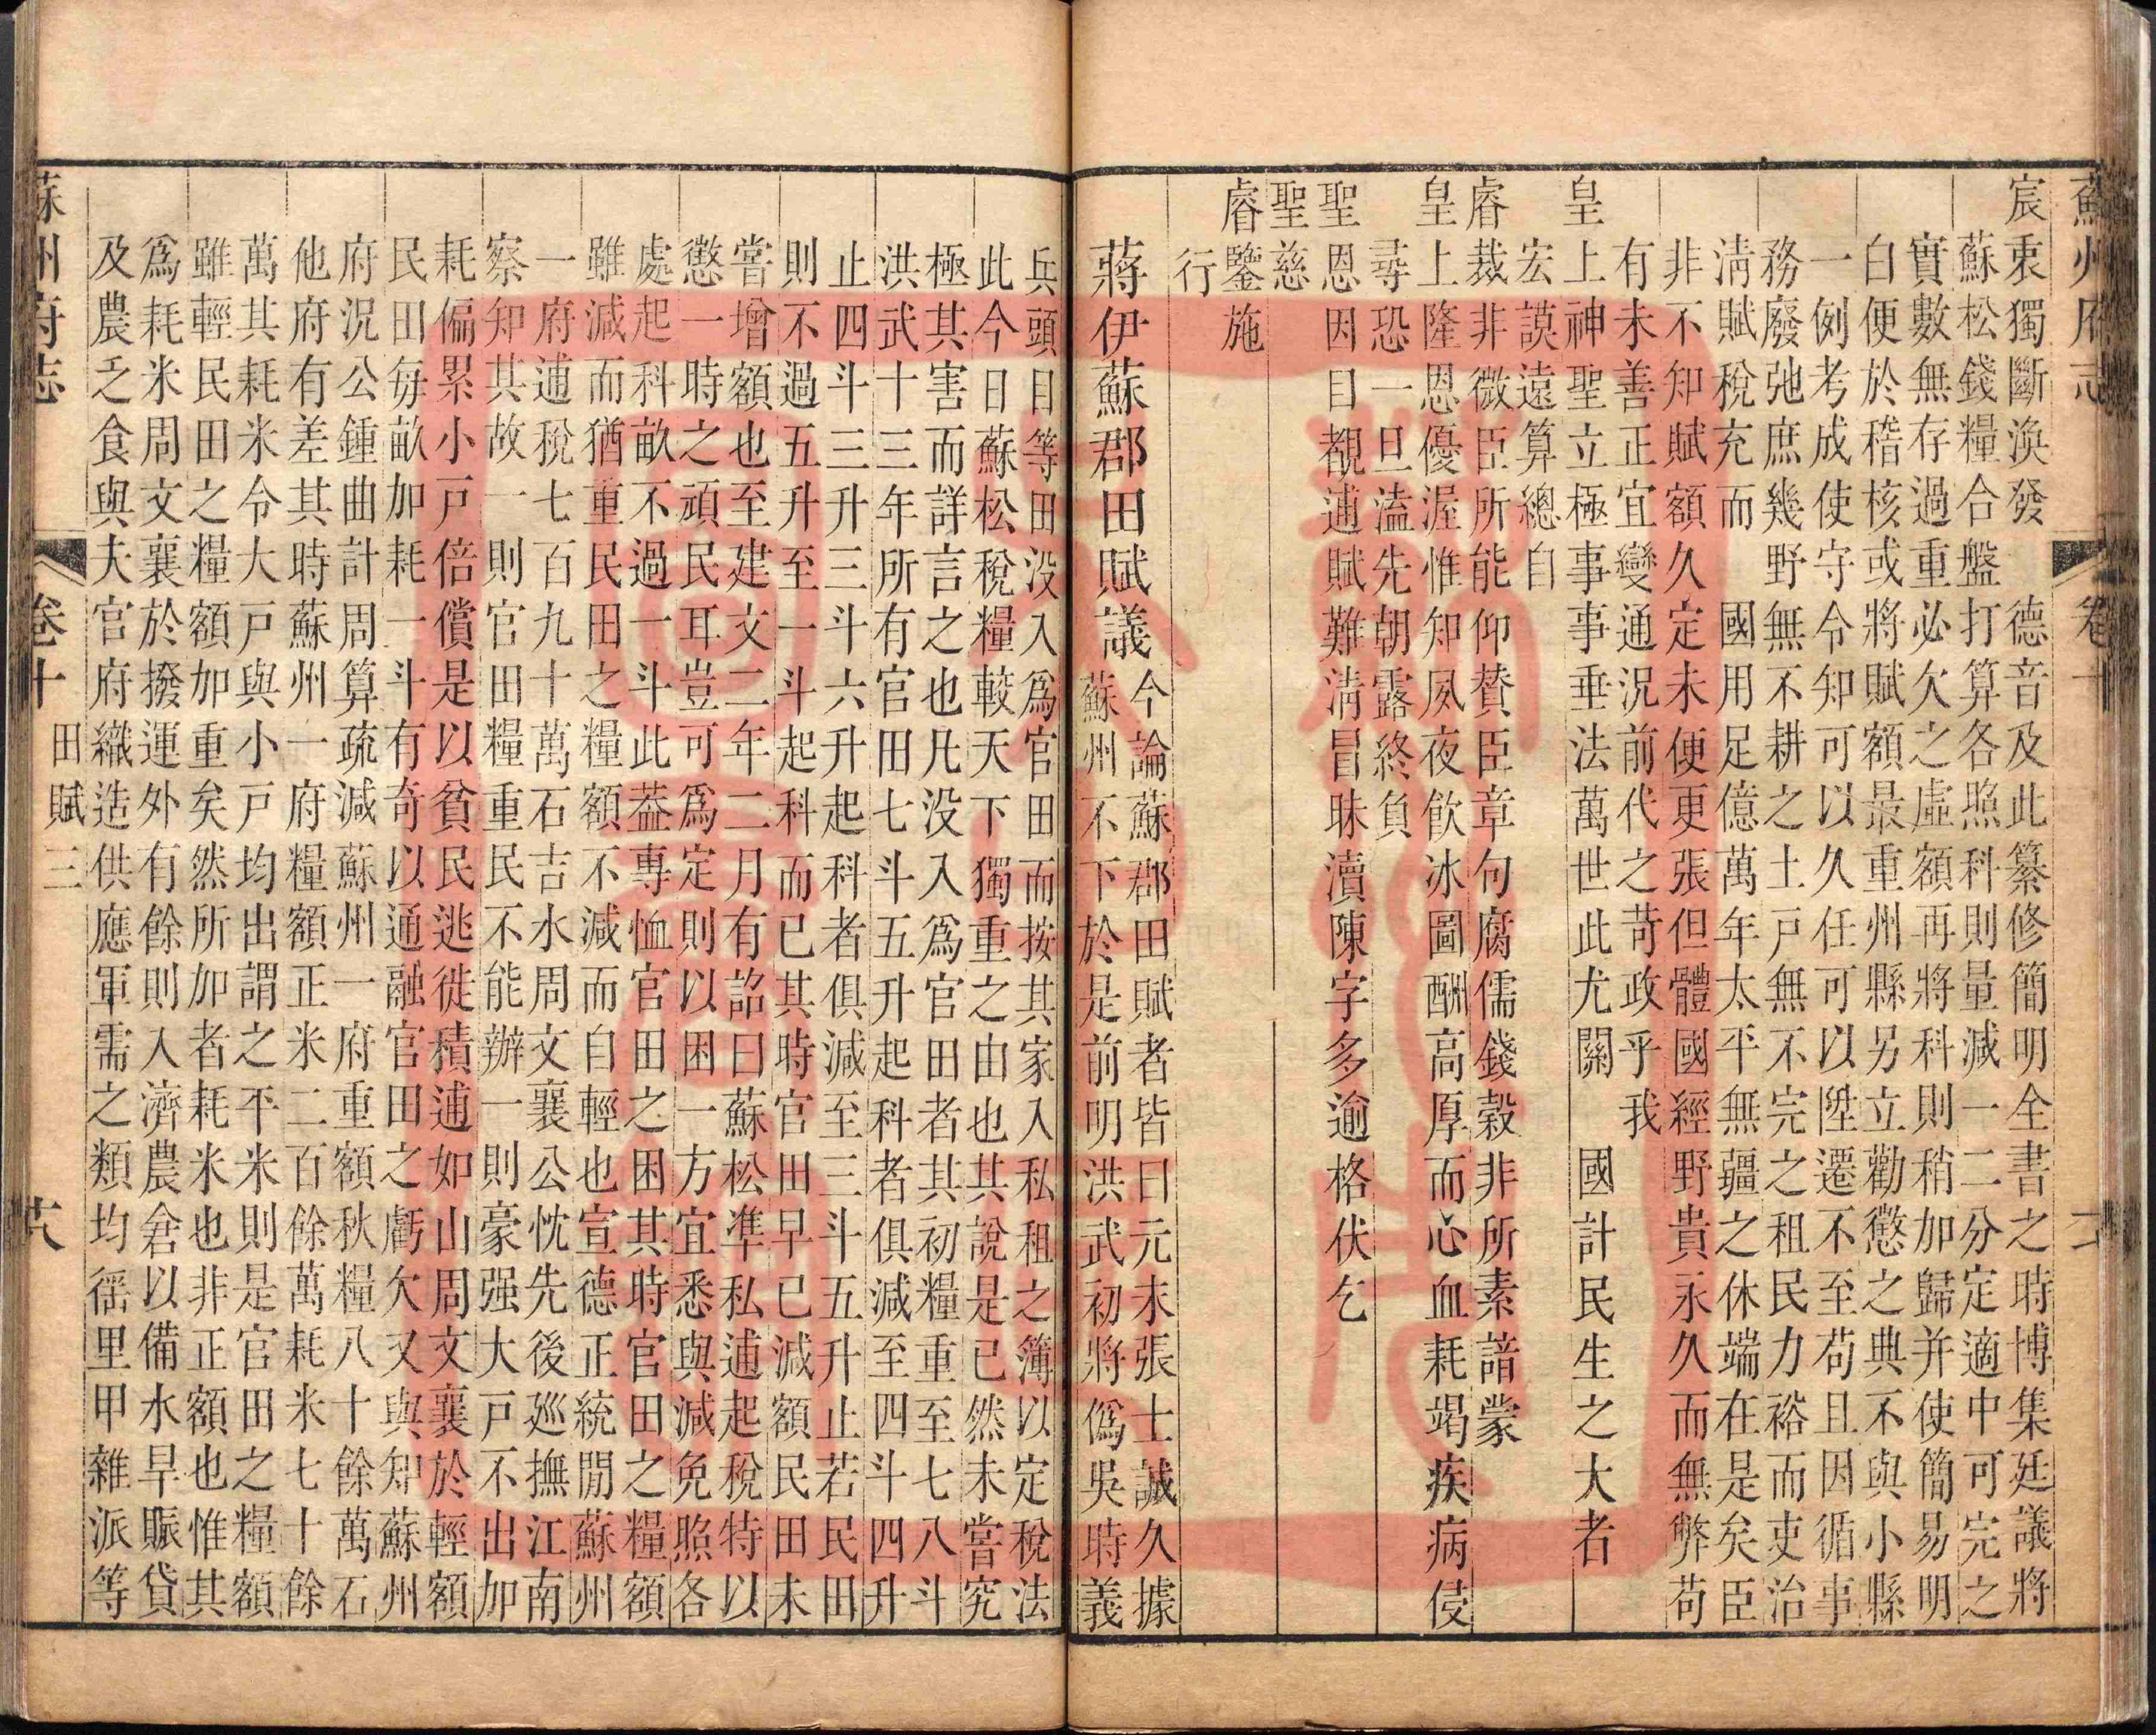 蘇州府志 卷十
宸衷獨斷渙發 德音及此纂修簡明全書之時博集廷議將
蘇松錢糧合盤打算各照科則量減一二分定適中可完之
實數無存過重必欠之虛額再將科則稍加歸并使簡易明
白便於稽核或將賦額最重州縣另立勸懲之典不與小縣
一例考成使守令知可以久任可以陞遷不至苟且因循事
務廢弛庶幾野無不耕之土戸無不完之租民力裕而吏治
淸賦稅充而 國用足億萬年太平無疆之休端在是矣臣
非不知賦額久定未便更張但體國經野貴永久而無弊苟
有未善正宜變通況前代之苛政乎我
皇上神聖立極事事垂法萬世此尤關 國計民生之大者
宏謨遠算總自
睿裁非微臣所能仰贊臣章句腐儒錢穀非所素諳蒙
皇上隆恩優渥惟知夙夜飮冰圖酬高厚而心血耗竭疾病侵
尋恐一旦溘先朝露終負
聖恩因目覩逋賦難淸冒昧瀆陳字多逾格伏乞
聖慈
睿鑒施
行
蔣伊蘇郡田賦議 今論蘇郡田賦者皆曰元末張士誠久據
蘇州不下於是前明洪武初將僞吳時義
兵頭目等田没入爲官田而按其家入私租之簿以定稅法
此今日蘇松稅糧較天下獨重之由也其說是已然未嘗究
極其害而詳言之也凡没入爲官田者其初糧重至七八斗
洪武十三年所有官田七斗五升起科者俱減至四斗四升
止四斗三升三斗六升起科者俱減至三斗五升止若民田
則不過五升至一斗起科而已其時官田早已減額民田未
嘗增額也至建文二年二月有詔曰蘇松準私逋起稅特以
懲一時之頑民耳豈可爲定則以困一方宜悉與減免照各
處起科畝不過一斗此葢專恤官田之困其時官田之糧額
雖減而猶重民田之糧額不減而自輕也宣德正統閒蘇州
一府逋稅七百九十萬石吉水周文襄公忱先後廵撫江南
察知其故一則官田糧重民不能辦一則豪强大戸不出加
耗偏累小戸倍償是以貧民逃徙積逋如山周文襄於輕額
民田每畝加耗一斗有奇以通融官田之虧欠又與知蘇州
府況公鍾曲計周算疏減蘇州一府重額秋糧八十餘萬石
他府有差其時蘇州一府糧額正米二百餘萬耗米七十餘
萬其耗米令大戸與小戸均出謂之平米則是官田之糧額
雖輕民田之糧額加重矣然所加者耗米也非正額也惟其
爲耗米周文襄於撥運外有餘則入濟農倉以備水旱賑貸
及農乏食與大官府織造供應軍需之類均徭里甲雜派等
蘇州府志 卷十 田賦三 六